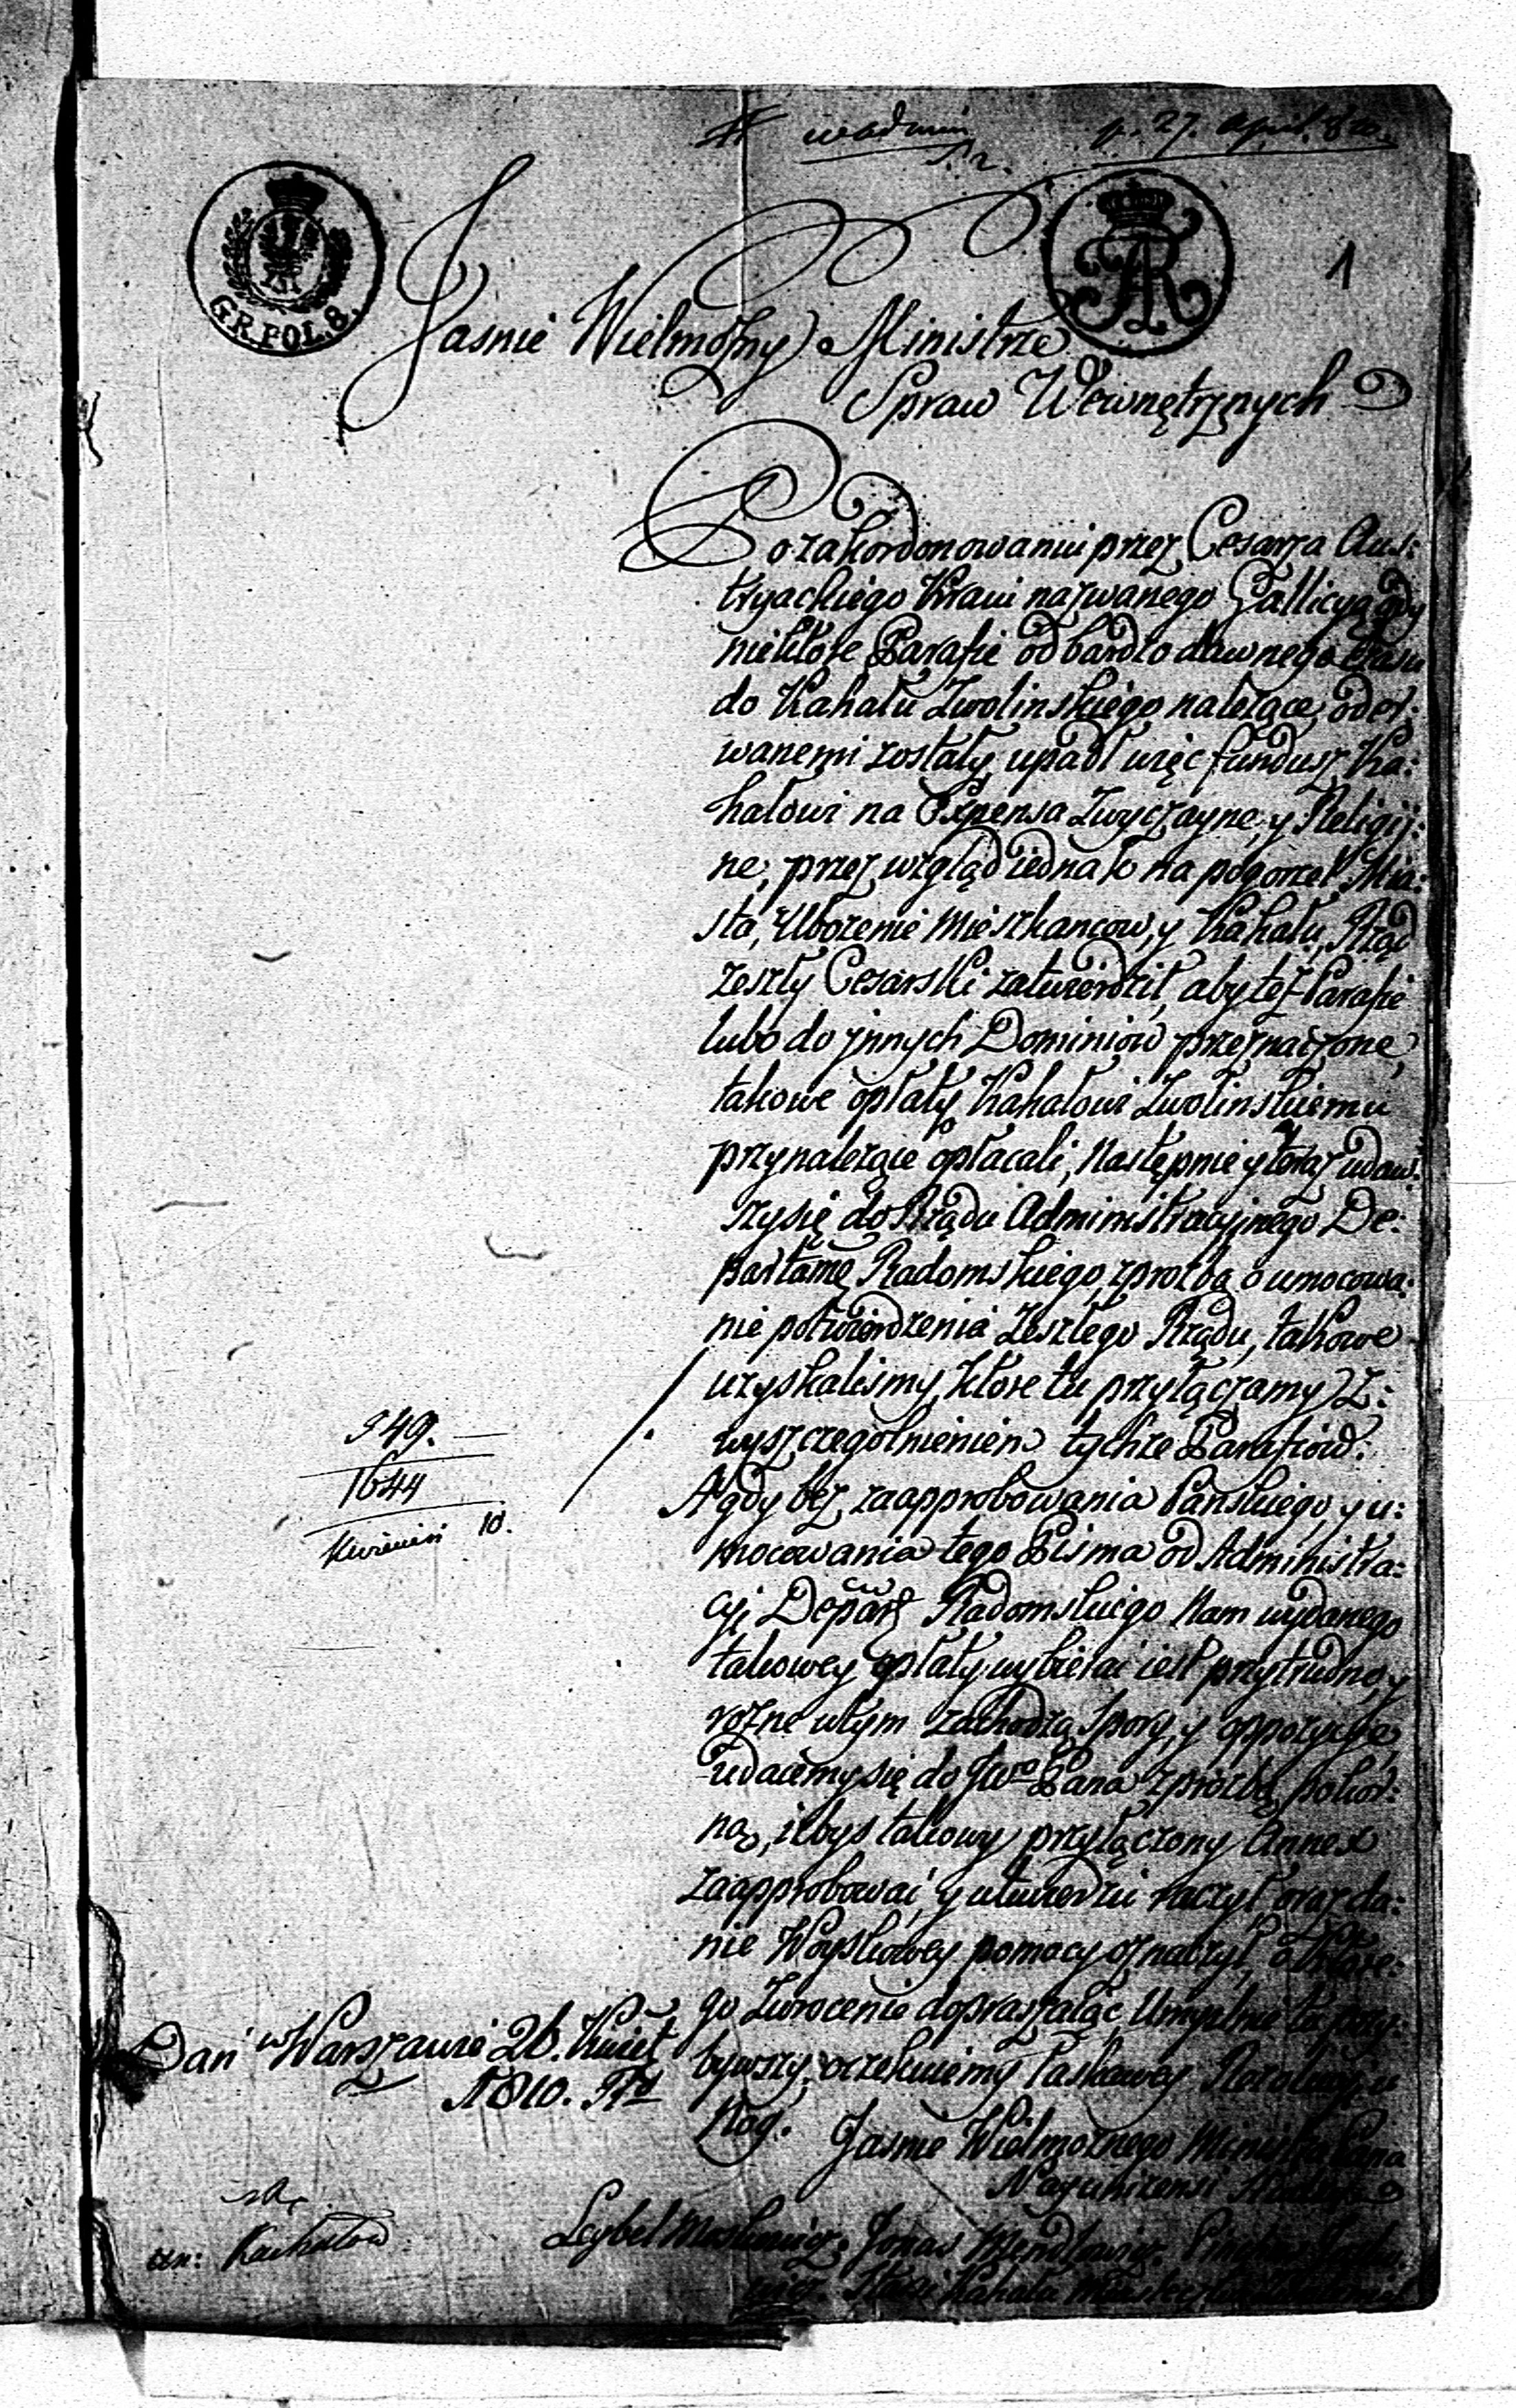 p. 27. April.
1
GR. POL. 8.
Jasnie Wielmożny Ministrze
Spraw Wewnętrznych
Po zakordonowaniu przez Cesarza Aus:
tryackiego Kraiu nazwanego Gallicyą gdy
niektore Parafie od bardzo dawnego czasu
do Kahału Zwolinskiego należące, oder:
wanemi zostały, upadł więc fundusz Ka:
hałowi na Expensa Zwyczayne, y Religij:
ne, przez wzgląd iednak na pogorzel Mia:
sta, Ubożenie Mieszkancow, y Kahału, Rząd
Zeszły Cesarski zatwierdził, aby też Parafie
lubo do jnnych Dominiow przeznaczone,
takowe opłaty Kahałowi Zwolinskiemu
przynależące opłacali, Następnie y teraz udaw:
szysię do Rządu Administracyjnego De:
partamę Radomskiego, z proźbą o umocowa:
nie potwierdzenia Zeszłego Rządu, takowe
uzyskalismy, ktore tu przyłączamy z:
wyszczegolnieniem tychże Parafiow:
A gdy bez zaapprobowania Panskiego, y u:
mocowania tego Pisma od Administra:
cyi Depart Radomskiego Nam wydanego
takowey opłaty wybierać iest przytrudno, y
rożne wtym zachodzą spory, y oppozycye,
udaiemysię do JWo Pana z proźbą pokor:
ną, iżbys takowy przyłączony Annex
zaapprobować, y utwierdzić raczył, oraz da:
nie Woyskowey pomocy oznaczył, o ktore:
go Zwrocenie dopraszaiąc, Umyslnie tu przy:
bywszy, oczekuiemy łaskawey Rezolucyi
549.
1644
Kwiecień 10.
Dan w Warszawie 26. Kwiet
1810. Rd
Jasnie Wielmożnego Ministra Pana
Nayuniżensi
Leybel Moskowicz. Jonas Mendlowicz.
Kahału